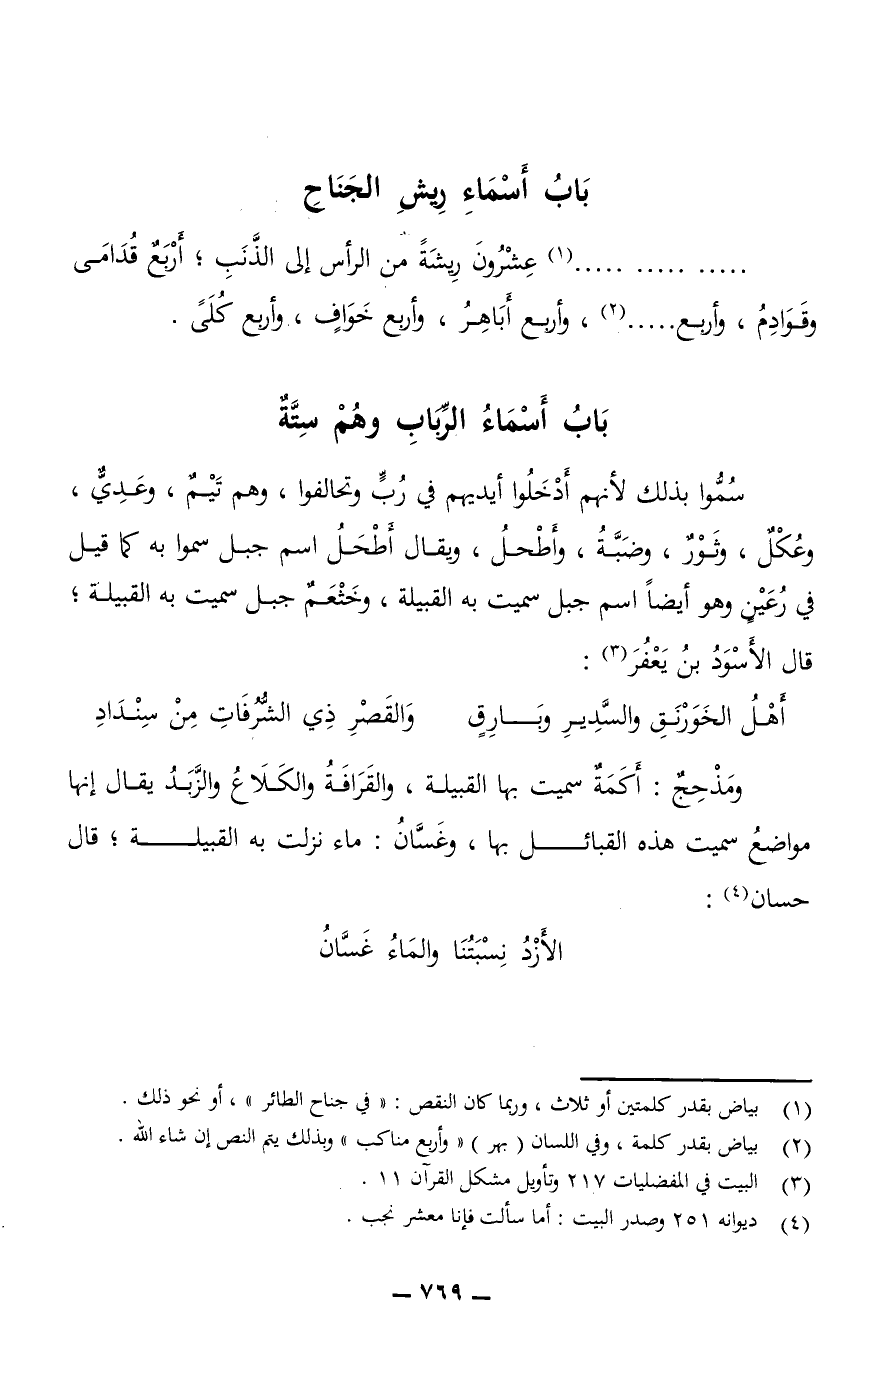 بَابُ أَسْمَاءِ رِيشِ الجَنَاحِ
..... ..... ..... .....(١) عِشْرُونَ رِيشَةً من الرأس إلى الذَّنَبِ ؛ أَرْبَعٌ قُدَامَى
وقَوَادِمُ ، وأربع.....(٢) ، وأربع أَبَاهِرُ ، وأربع خَوَافٍ ، وأربع كُلَىً .
بَابُ أَسْمَاءُ الرِّبَابِ وهُمْ سِتَّةٌ
سُمُّوا بذلك لأنهم أَدْخَلُوا أيديهم في رُبٍّ وتحالفوا ، وهم تَيْمٌ ، وعَدِيٌّ ،
وعُكْلٌ ، وثَوْرٌ ، وضَبَّةُ ، وأَطْحلُ ، ويقال أَطْحَلُ اسم جبل سموا به كما قيل
في رُعَيْنٍ وهو أيضاً اسم جبل سميت به القبيلة ، وخَثْعَمٌ جبل سميت به القبيلة ؛
قال الأَسْوَدُ بنُ يَعْفُرَ(٣) :
أَهْلُ الخَوَرْنَقِ والسَّدِيرِ وبَارِقٍ والقَصْرِ ذِي الشُّرُفَاتِ مِنْ سِنْدَادِ
ومَذْحِجٌ : أَكَمَةٌ سميت بها القبيلة ، والقَرَافَةُ والكَلَاعُ والزَّبَدُ يقال إنها
مواضعُ سميت هذه القبائل بها ، وغَسَّانُ : ماء نزلت به القبيلة ؛ قال
حسان(٤) :
الأَزْدُ نِسْبَتُنَا والمَاءُ غَسَّانُ
(١) بياض بقدر كلمتين أو ثلاث ، وربما كان النقص : « في جناح الطائر » ، أو نحو ذلك .
(٢) بياض بقدر كلمة ، وفي اللسان ( بهر ) « وأربع مناكب » وبذلك يتم النص إن شاء الله .
(٣) البيت في المفضليات ٢١٧ وتأويل مشكل القرآن ١١ .
(٤) ديوانه ٢٥١ وصدر البيت : أما سألت فإنا معشر نجب .
— ٧٦٩ —